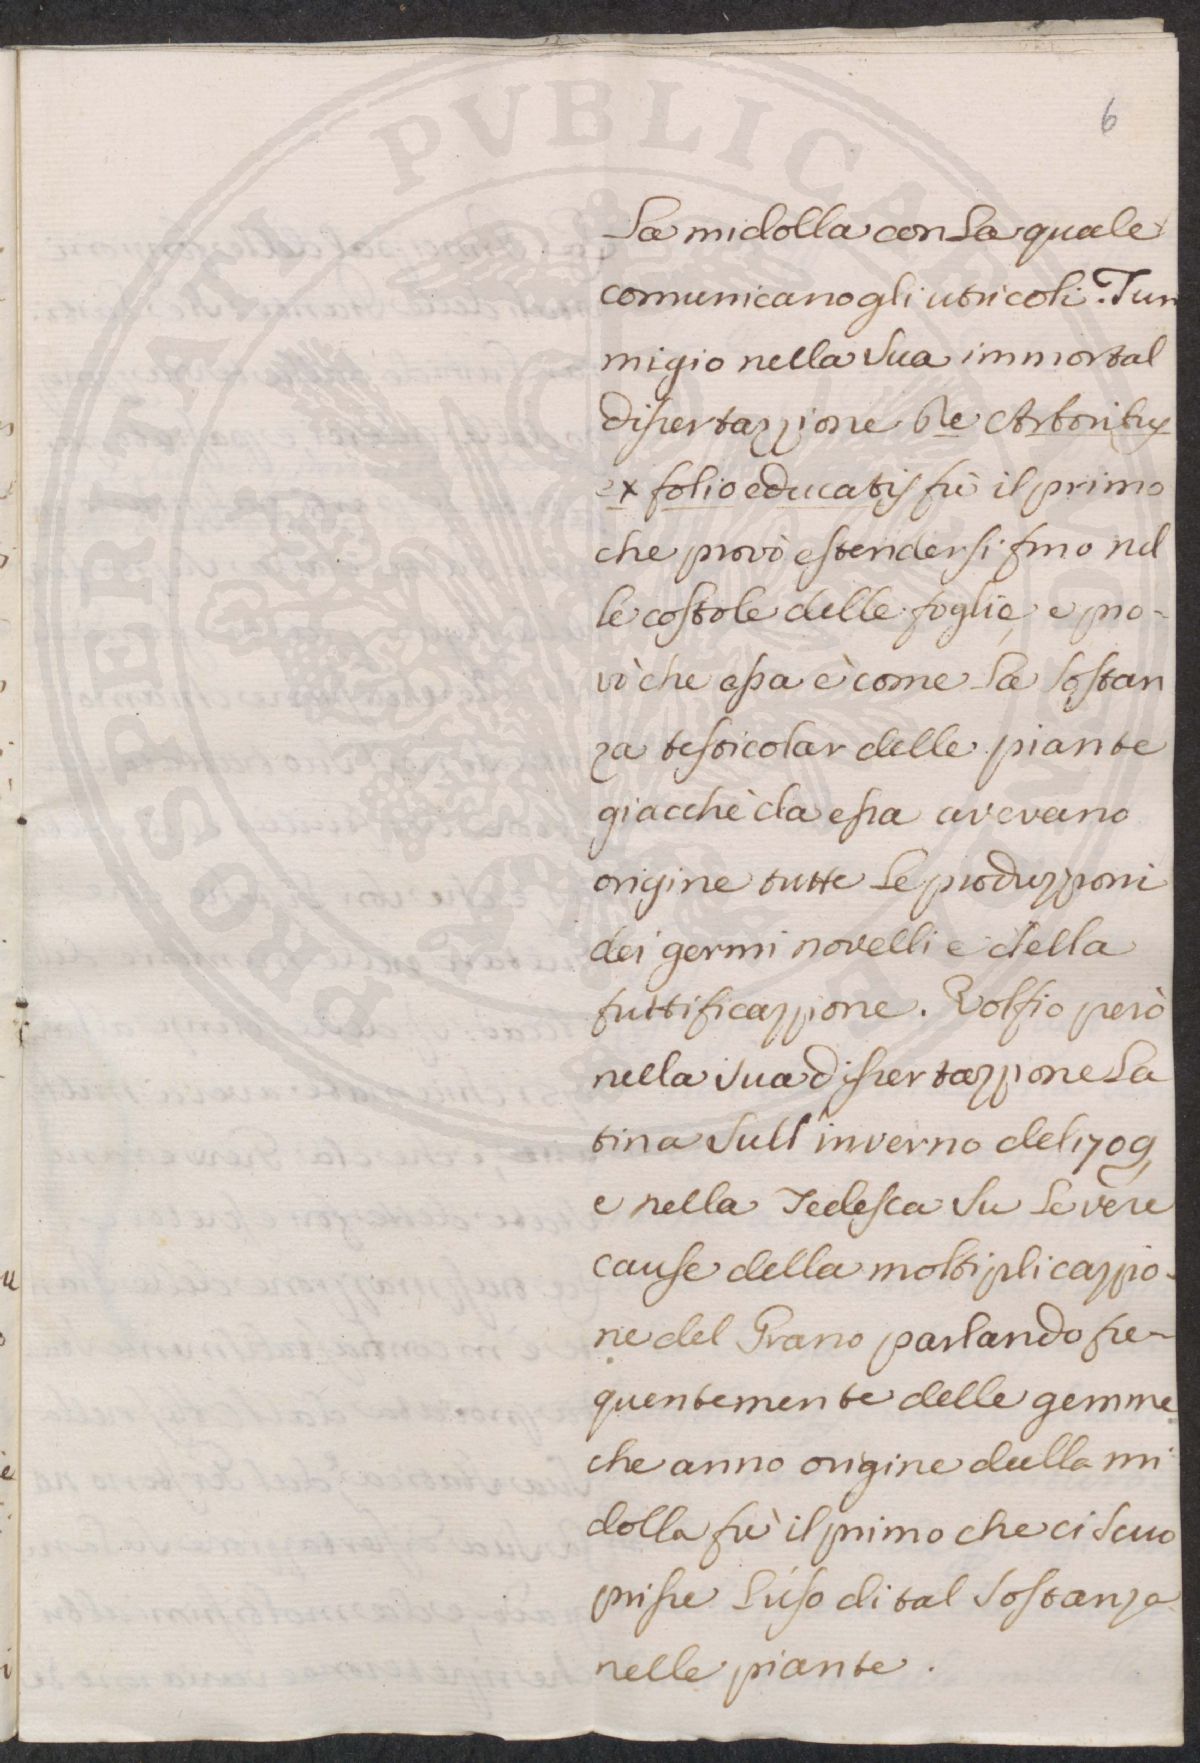 6
La midolla con la quale
comunicano gli utricoli. Tun
migio nella sua immortal
dissertazzione De Arboribus
ex folio educatis fù il primo
che provò estendersi fino nel
le costole delle foglie, e pro-
vò che essa è come la sostan
za testicolar delle piante
giacchè da essa avevano
origine tutte le produzzioni
dei germi novelli e della
fruttificazzione. Volfio però
nella sua dissertazzione la
tina sull'inverno del 1709,
e nella Tedesca su le vere
cause della moltiplicazzio-
ne del Grano parlando fre-
quentemente delle gemme
che anno origine dalla mi
dolla fù il primo che ci scuo
prisse l'uso di tal sostanza
nelle piante.
PROSPERITATI PVBLICAE